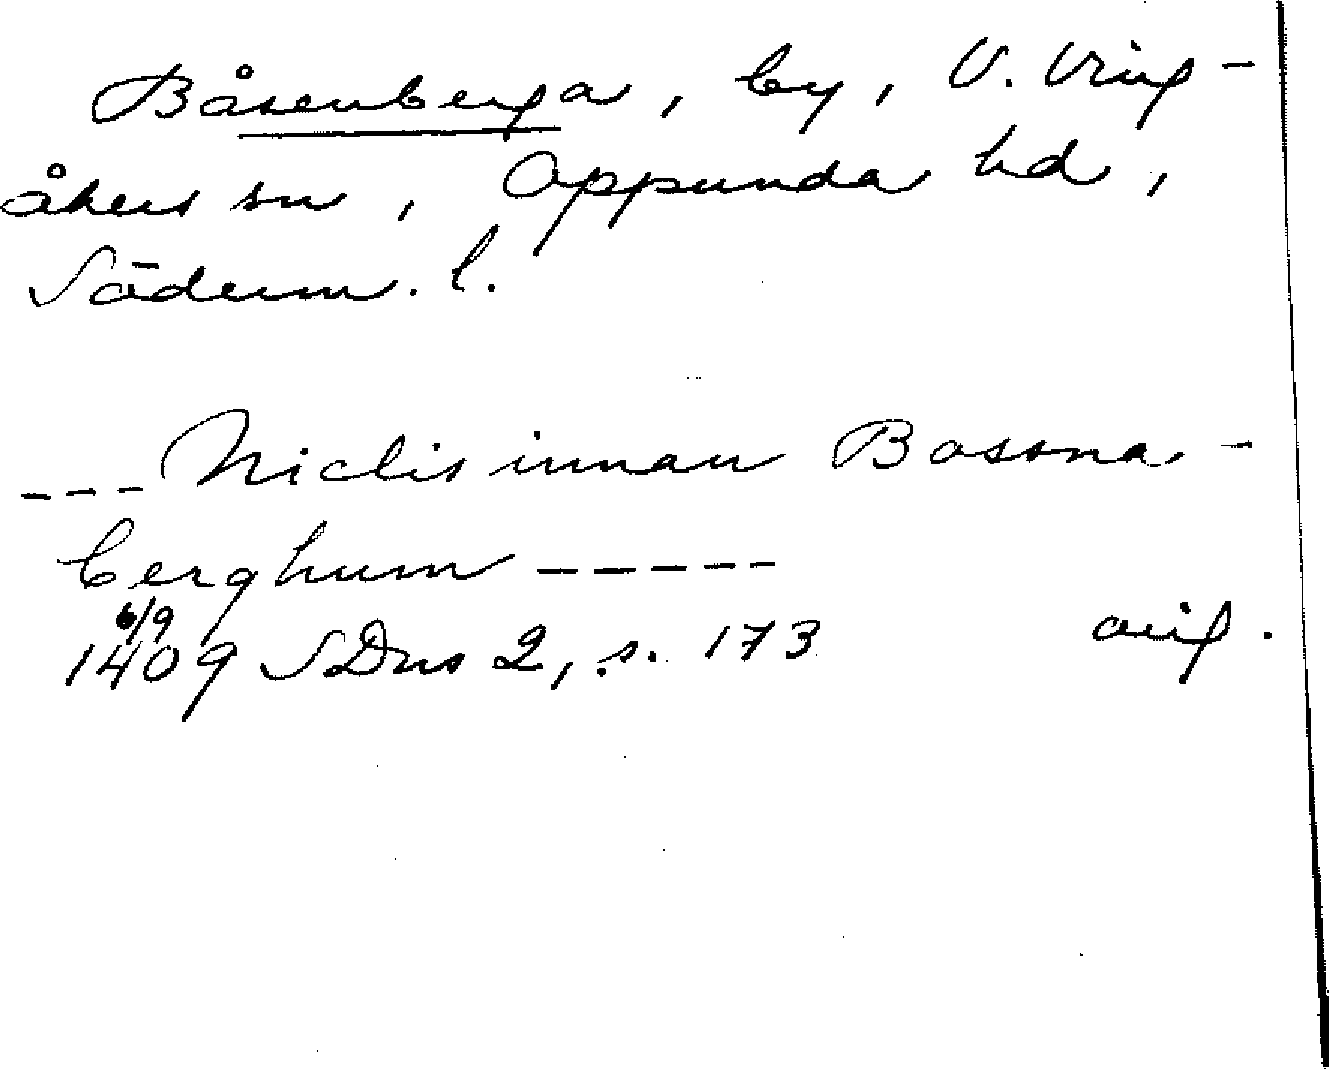 Båsenberga, by, V. Ving-
åkers sn, Oppunda hd,
Söderm. l.
--- Niclis innan Bosona-
berghum -----
6/9
1409 SDns 2, s. 173 orig.